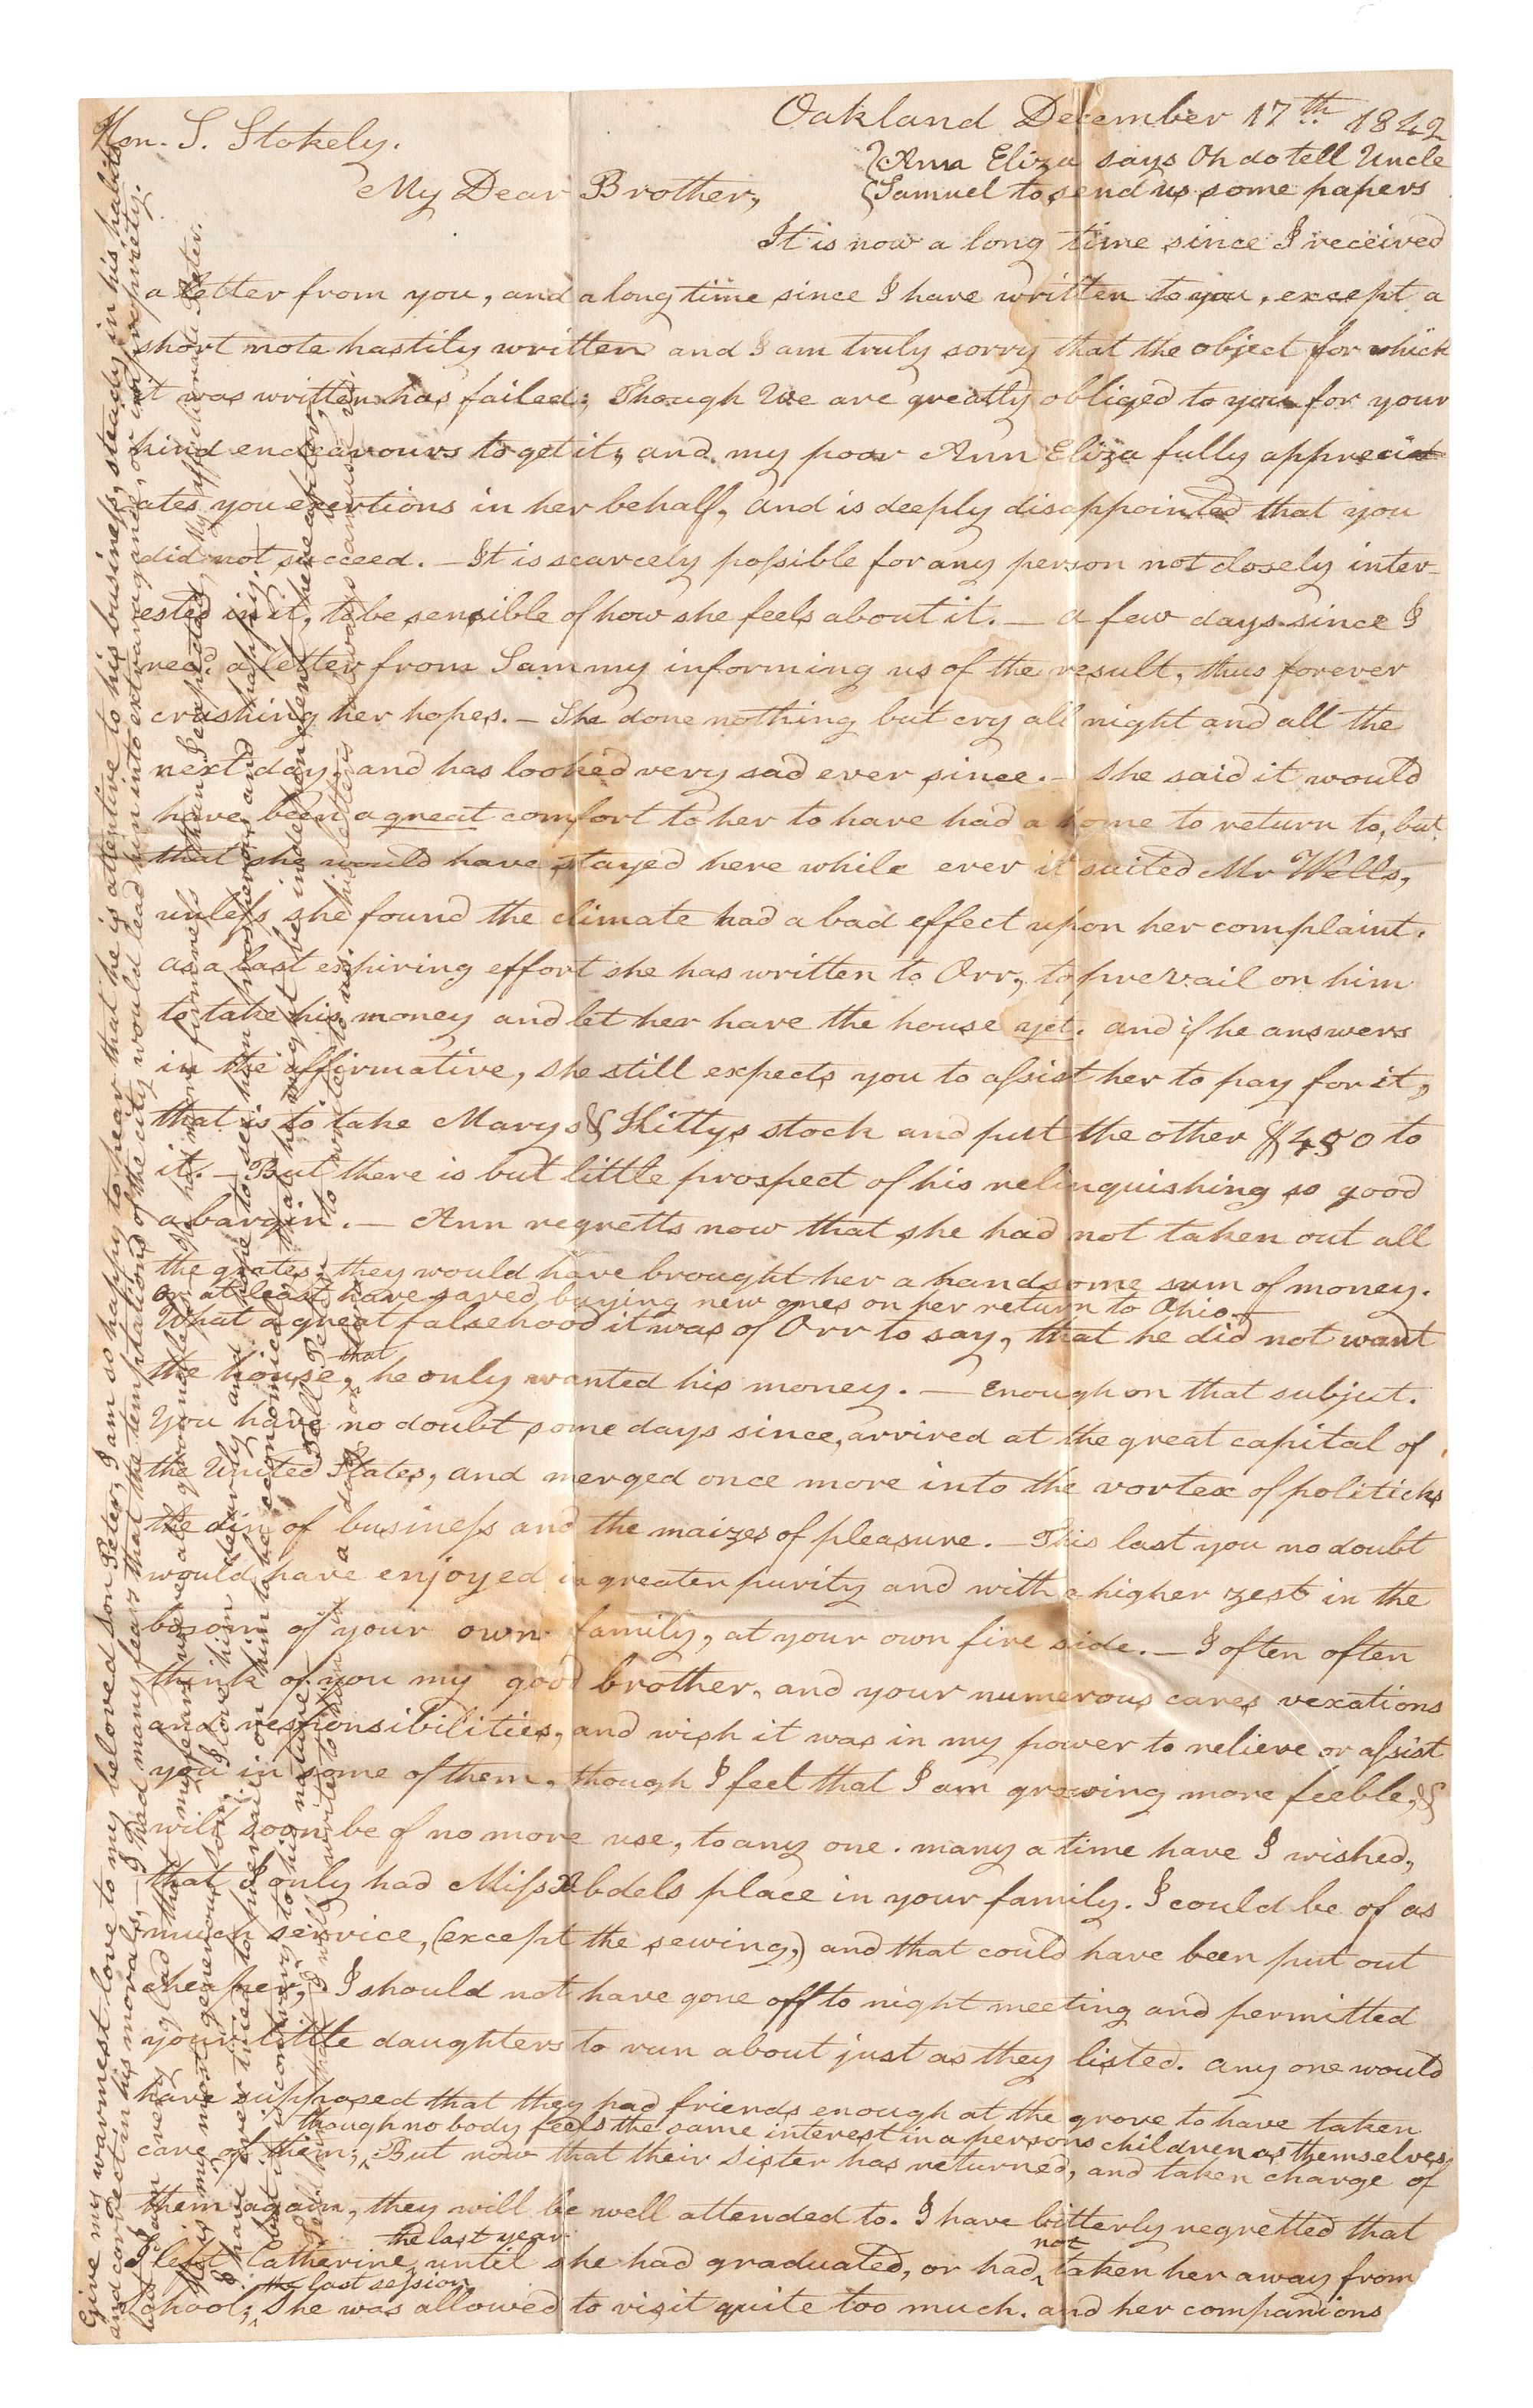 Oakland December 17th 1842
Hon. S. Stokely.
{Ann Eliza says Oh do tell Uncle
{Samuel to send us some papers
My Dear Brother,
It is now a long time since I received
a letter from you, and a long time since I have written to you, except a
short note hastily written and I am truly sorry that the object for which
it was written has failed; Though We are greatly obliged to you for your
kind endeavours to get it, and my poor Ann Eliza fully appreci
ates you exertions in her behalf, and is deeply disappointed that you
did not succeed. — It is scarcely possible for any person not closely inter-
ested in it, to be sensible of how she feels about it. — a few days since I
recd a letter from Sammy informing us of the result, thus forever
crushing her hopes. — She done nothing but cry all night and all the
next day, and has looked very sad ever since. — She said it would
have been a great comfort to her to have had a home to return to, but
that she would have stayed here while ever it suited Mr Wells,
unless she found the climate had a bad effect upon her complaint.
as a last expiring effort she has written to Orr, to prevail on him
to take his money and let her have the house yet. and if he answers
in the affirmative, she still expects you to assist her to pay for it,
that is to take Marys & Kittys stock and put the other $450 to
it. — But there is but little prospect of his relinquishing so good
a bargin. — Ann regretts now that she had not taken out all
the grates; they would have brought her a handsome sum of money.
or at least have saved buying new ones on her return to Ohio. —
What a great falsehood it was of Orr to say, that he did not want
the house, that he only wanted his money. — Enough on that subject.
You have no doubt some days since, arrived at the great capital of
the United States, and merged once more into the vortex of politicks
the din of business and the maizes of pleasure. — This last you no doubt
would have enjoyed in greater purity and with a higher zest in the
bosom of your own family, at your own fire side. — I often often
think of you my good brother, and your numerous cares vexations
and responsibilities, and wish it was in my power to relieve or assist
you in some of them, though I feel that I am growing more feeble, &
will soon be of no more use, to any one. many a time have I wished,
that I only had Miss Abdels place in your family. I could be of as
much service, (except the sewing,) and that could have been put out
cheaper, I should not have gone off to night meeting and permitted
your little daughters to run about just as they listed. any one would
have supposed that they had friends enough at the grove to have taken
care of them; though no body feels the same interest in a persons children as themselves
But now that their sister has returned, and taken charge of
them again, they will be well attended to. I have bitterly regretted that
I left Catherine the last year until she had graduated, or had not taken her away from
school; the last session She was allowed to visit quite too much. and her companions
Give my warmest love to my beloved son Peter, I am so happy to hear that he is attentive to his business, steady in his habits
and correct in his morals, — I had many fears that the temptations of the city would lead him into extravagance, or impropriety.
but I am very glad that my fears were all groundless & he has more firmness than I expected
He is my most generous son, I love him dearly and hope to see him prosperous and happy.
I have ever tried to prevail on him to be economical that he might be independent hereafter,
but it is contrary to his nature.
Tell him that I will write to him in a day or two.
Tell Peter to write to us, his letters always amuse us.
My affectionate Sister.